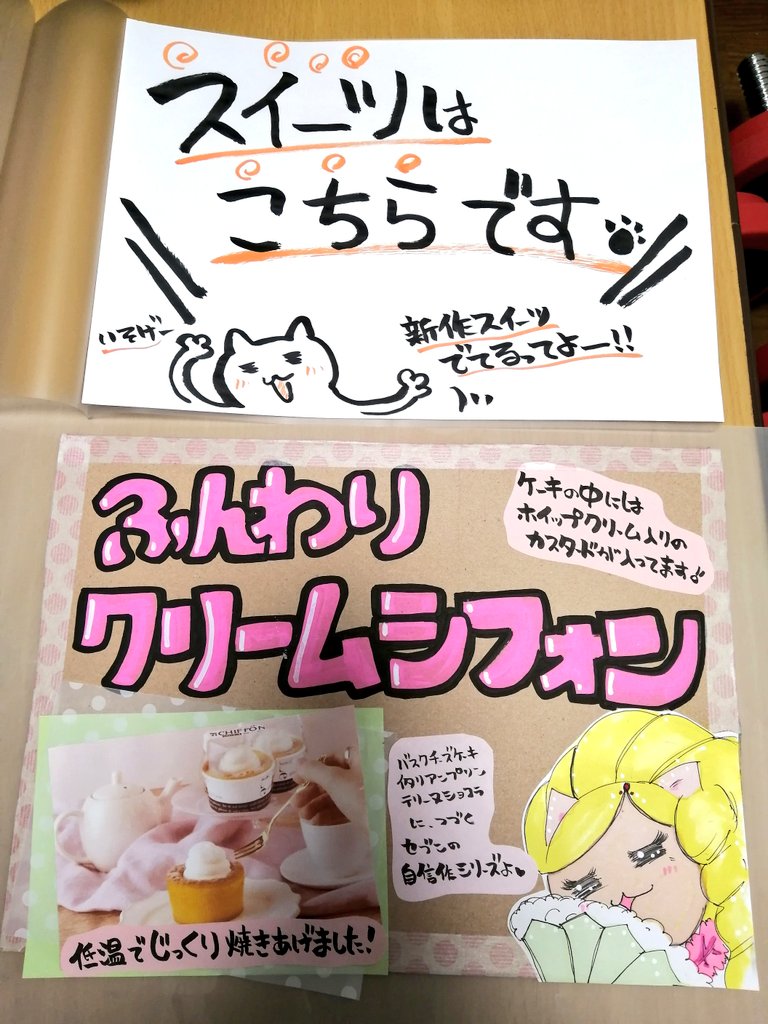 スイーツは
こちらです
いそげー
新作スイーツ
でてるってよー!!
ふんわり
クリームシフォン
ケーキの中には
ホイップクリーム入りの
カスタードが入ってます♪
CHIFFON
バスクチーズケーキ
イタリアンプリン
テリーヌショコラ
に、つづく
セブンの
自信作シリーズよ♥
低温でじっくり焼きあげました!